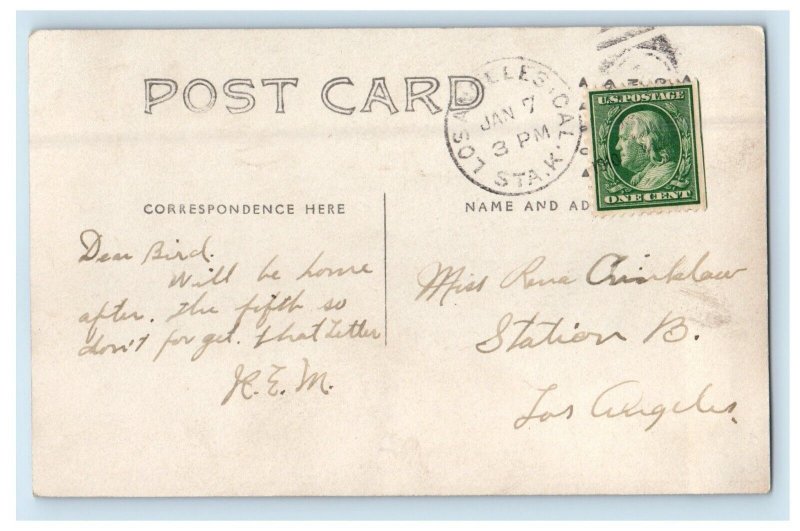 POST CARD
LOS ANGELES, CAL.
JAN 7
3 PM
STA. K.
U.S. POSTAGE
ONE CENT
CORRESPONDENCE HERE
NAME AND AD
Dear Bird.
Will be home
after. The fifth so
don't forget. that Letter
R.E.M.
Miss Rena
Station B.
Los Angeles.